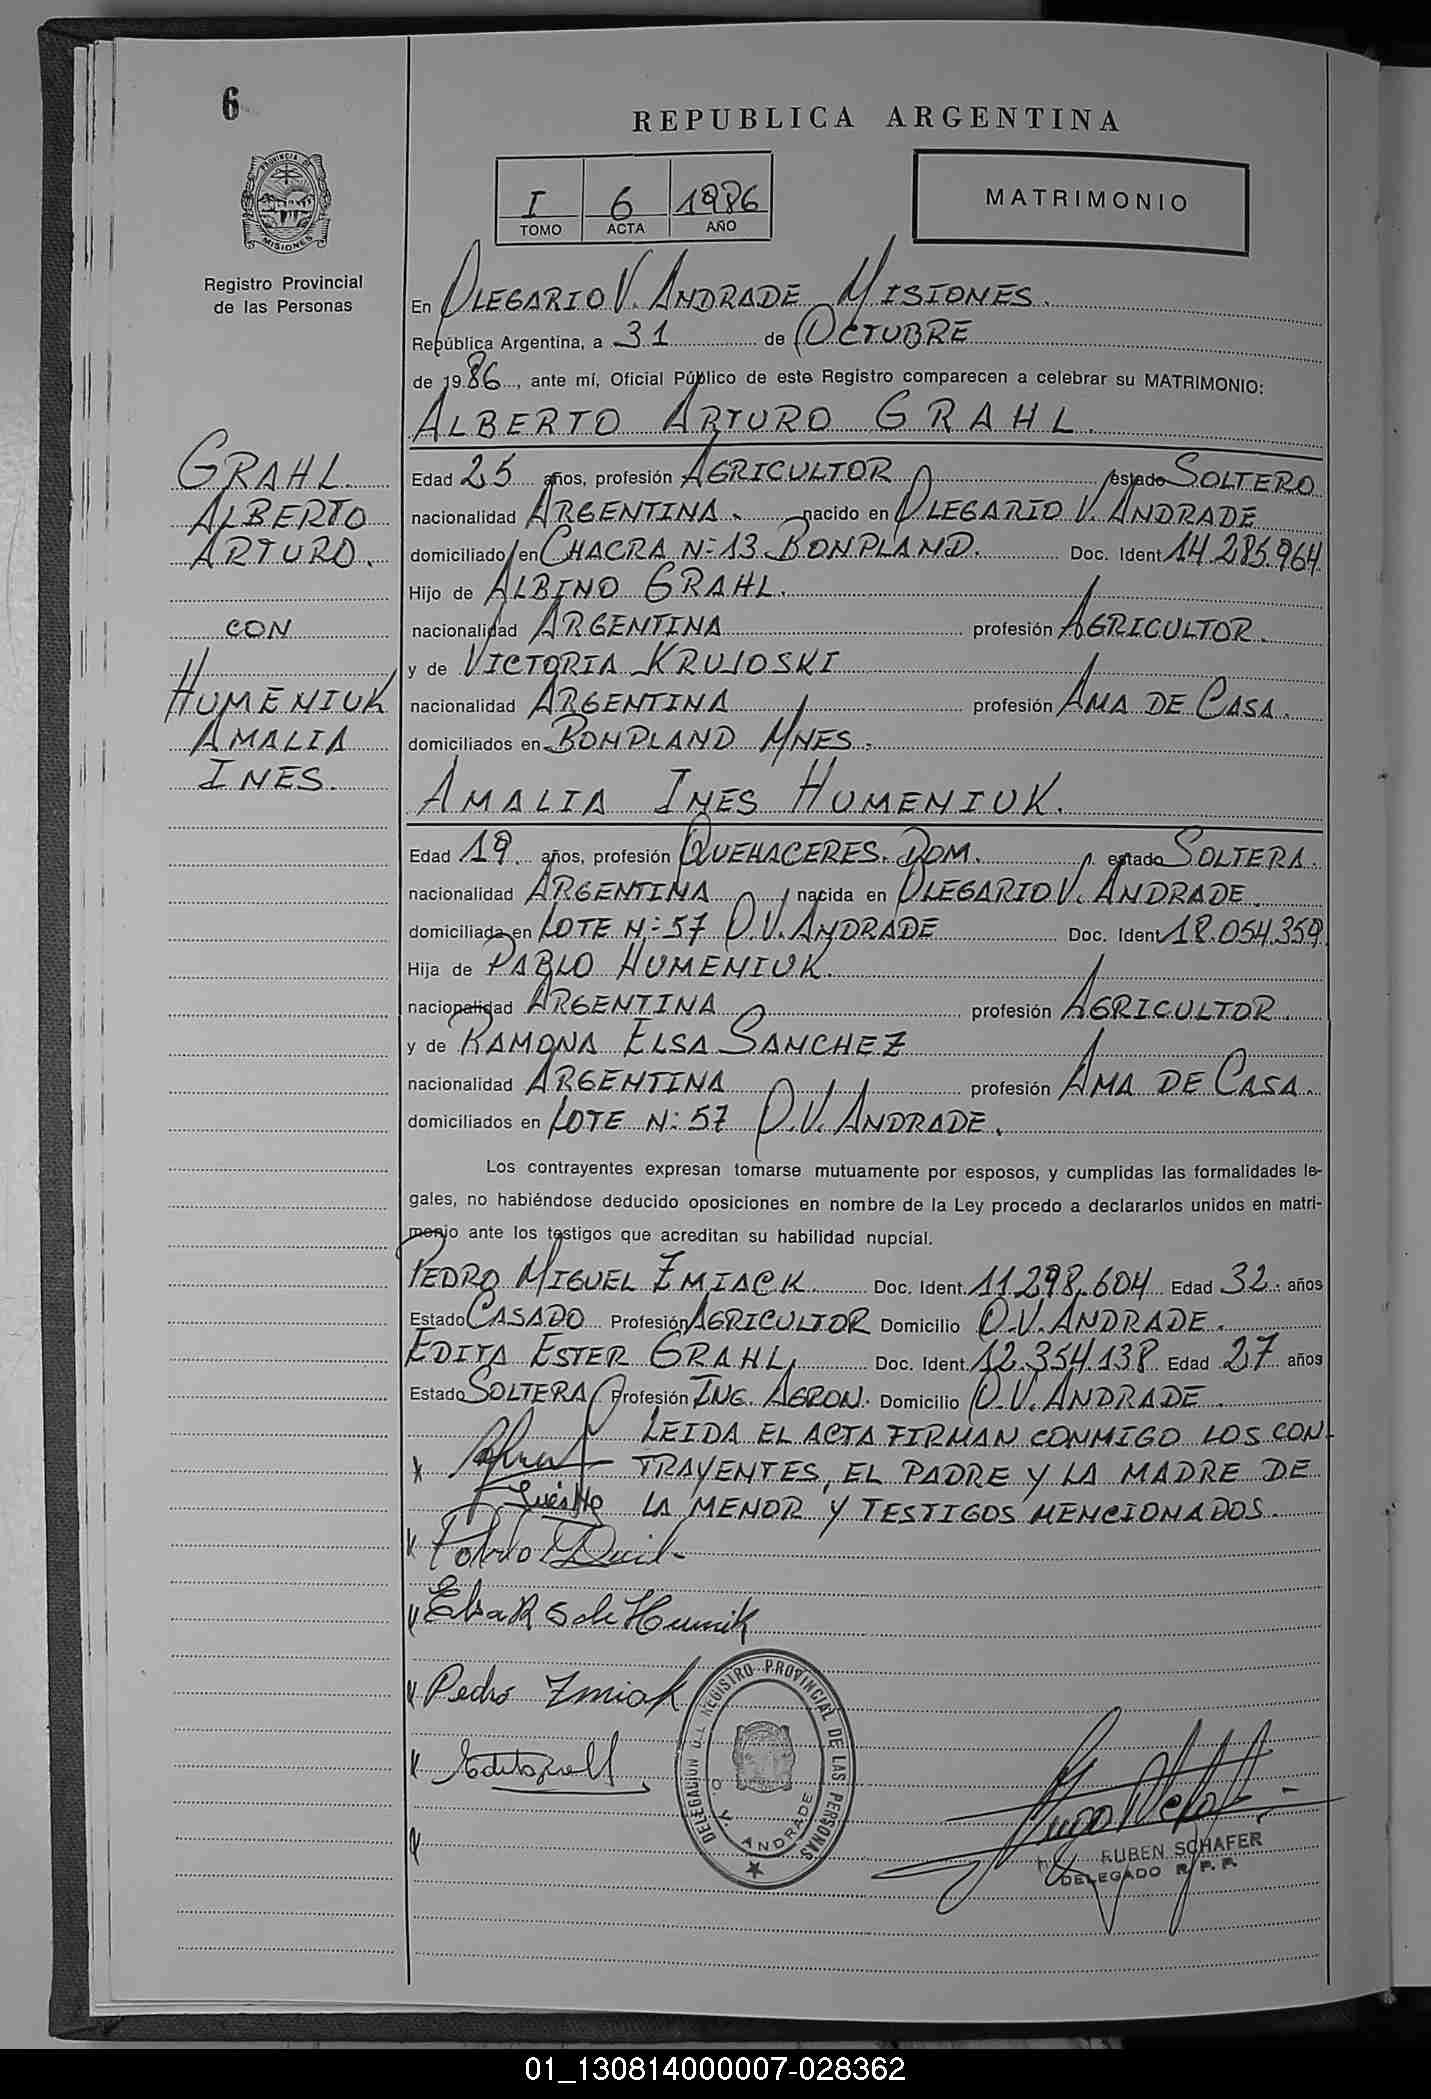 6
REPUBLICA ARGENTINA
PROVINCIA DE MISIONES
I 6 1986
TOMO ACTA AÑO
MATRIMONIO
Registro Provincial
de las Personas
En OLEGARIO V. ANDRADE MISIONES.
República Argentina, a 31 de OCTUBRE
de 1986, ante mí, Oficial Público de este Registro comparecen a celebrar su MATRIMONIO:
ALBERTO ARTURO GRAHL.
GRAHL.
ALBERTO
ARTURO.
CON
HUMENIUK
AMALIA
INES.
Edad 25 años, profesión AGRICULTOR estado SOLTERO
nacionalidad ARGENTINA. nacido en OLEGARIO V. ANDRADE
domiciliado en CHACRA N:-13 BONPLAND. Doc. Ident 14.285.964
Hijo de ALBINO GRAHL.
nacionalidad ARGENTINA profesión AGRICULTOR.
y de VICTORIA KRUJOSKI
nacionalidad ARGENTINA profesión AMA DE CASA.
domiciliados en BONPLAND MNES.
AMALIA INES HUMENIUK.
Edad 19. años, profesión QUEHACERES. DOM. estado SOLTERA.
nacionalidad ARGENTINA nacida en OLEGARIO V. ANDRADE.
domiciliada en LOTE N:-57 O.V. ANDRADE Doc. Ident 18.054.359
Hija de PABLO HUMENIUK.
nacionalidad ARGENTINA profesión AGRICULTOR.
y de RAMONA ELSA SANCHEZ
nacionalidad ARGENTINA profesión AMA DE CASA.
domiciliados en LOTE N: 57 O.V. ANDRADE.
Los contrayentes expresan tomarse mutuamente por esposos, y cumplidas las formalidades le-
gales, no habiéndose deducido oposiciones en nombre de la Ley procedo a declararlos unidos en matri-
monio ante los testigos que acreditan su habilidad nupcial.
PEDRO MIGUEL ZMIACK. Doc. Ident. 11.298.604 Edad 32. años
Estado CASADO Profesión AGRICULTOR Domicilio O.V. ANDRADE.
EDITA ESTER GRAHL, Doc. Ident. 12.354.138 Edad 27 años
Estado SOLTERA Profesión ING. AGRON. Domicilio O.V. ANDRADE.
LEIDA EL ACTA FIRMAN CONMIGO LOS CON-
TRAYENTES, EL PADRE Y LA MADRE DE
LA MENOR Y TESTIGOS MENCIONADOS.
Pablo
Elsa R S de Humnik
Pedro Zmiak
DELEGACION DEL REGISTRO PROVINCIAL DE LAS PERSONAS
O. V. ANDRADE
RUBEN SCHAFER
DELEGADO R. P. P.
01_130814000007-028362